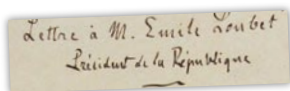 Lettre à M. Emile Loubet
Président de la République